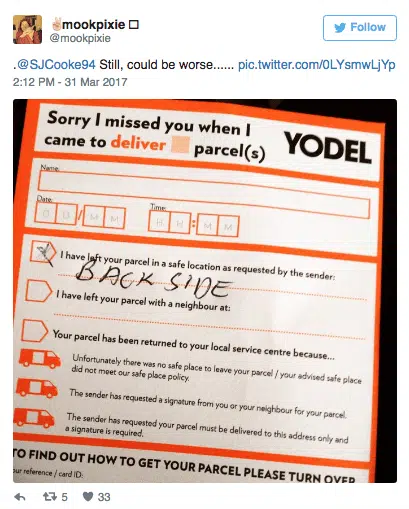 ✌🏻mookpixie
@mookpixie
Follow
.@SJCooke94 Still, could be worse...... pic.twitter.com/0LYsmwLjYp
2:12 PM - 31 Mar 2017
Sorry I missed you when I
came to deliver parcel(s)
YODEL
Name:
Date: Time:
D D / M M H H : M M
I have left your parcel in a safe location as requested by the sender:
BACK SIDE
I have left your parcel with a neighbour at:
Your parcel has been returned to your local service centre because...
Unfortunately there was no safe place to leave your parcel / your advised safe place
did not meet our safe place policy.
The sender has requested a signature from you or your neighbour for your parcel.
The sender has requested your parcel must be delivered to this address only and
a signature is required.
TO FIND OUT HOW TO GET YOUR PARCEL PLEASE TURN OVER
our reference / card ID:
5 33